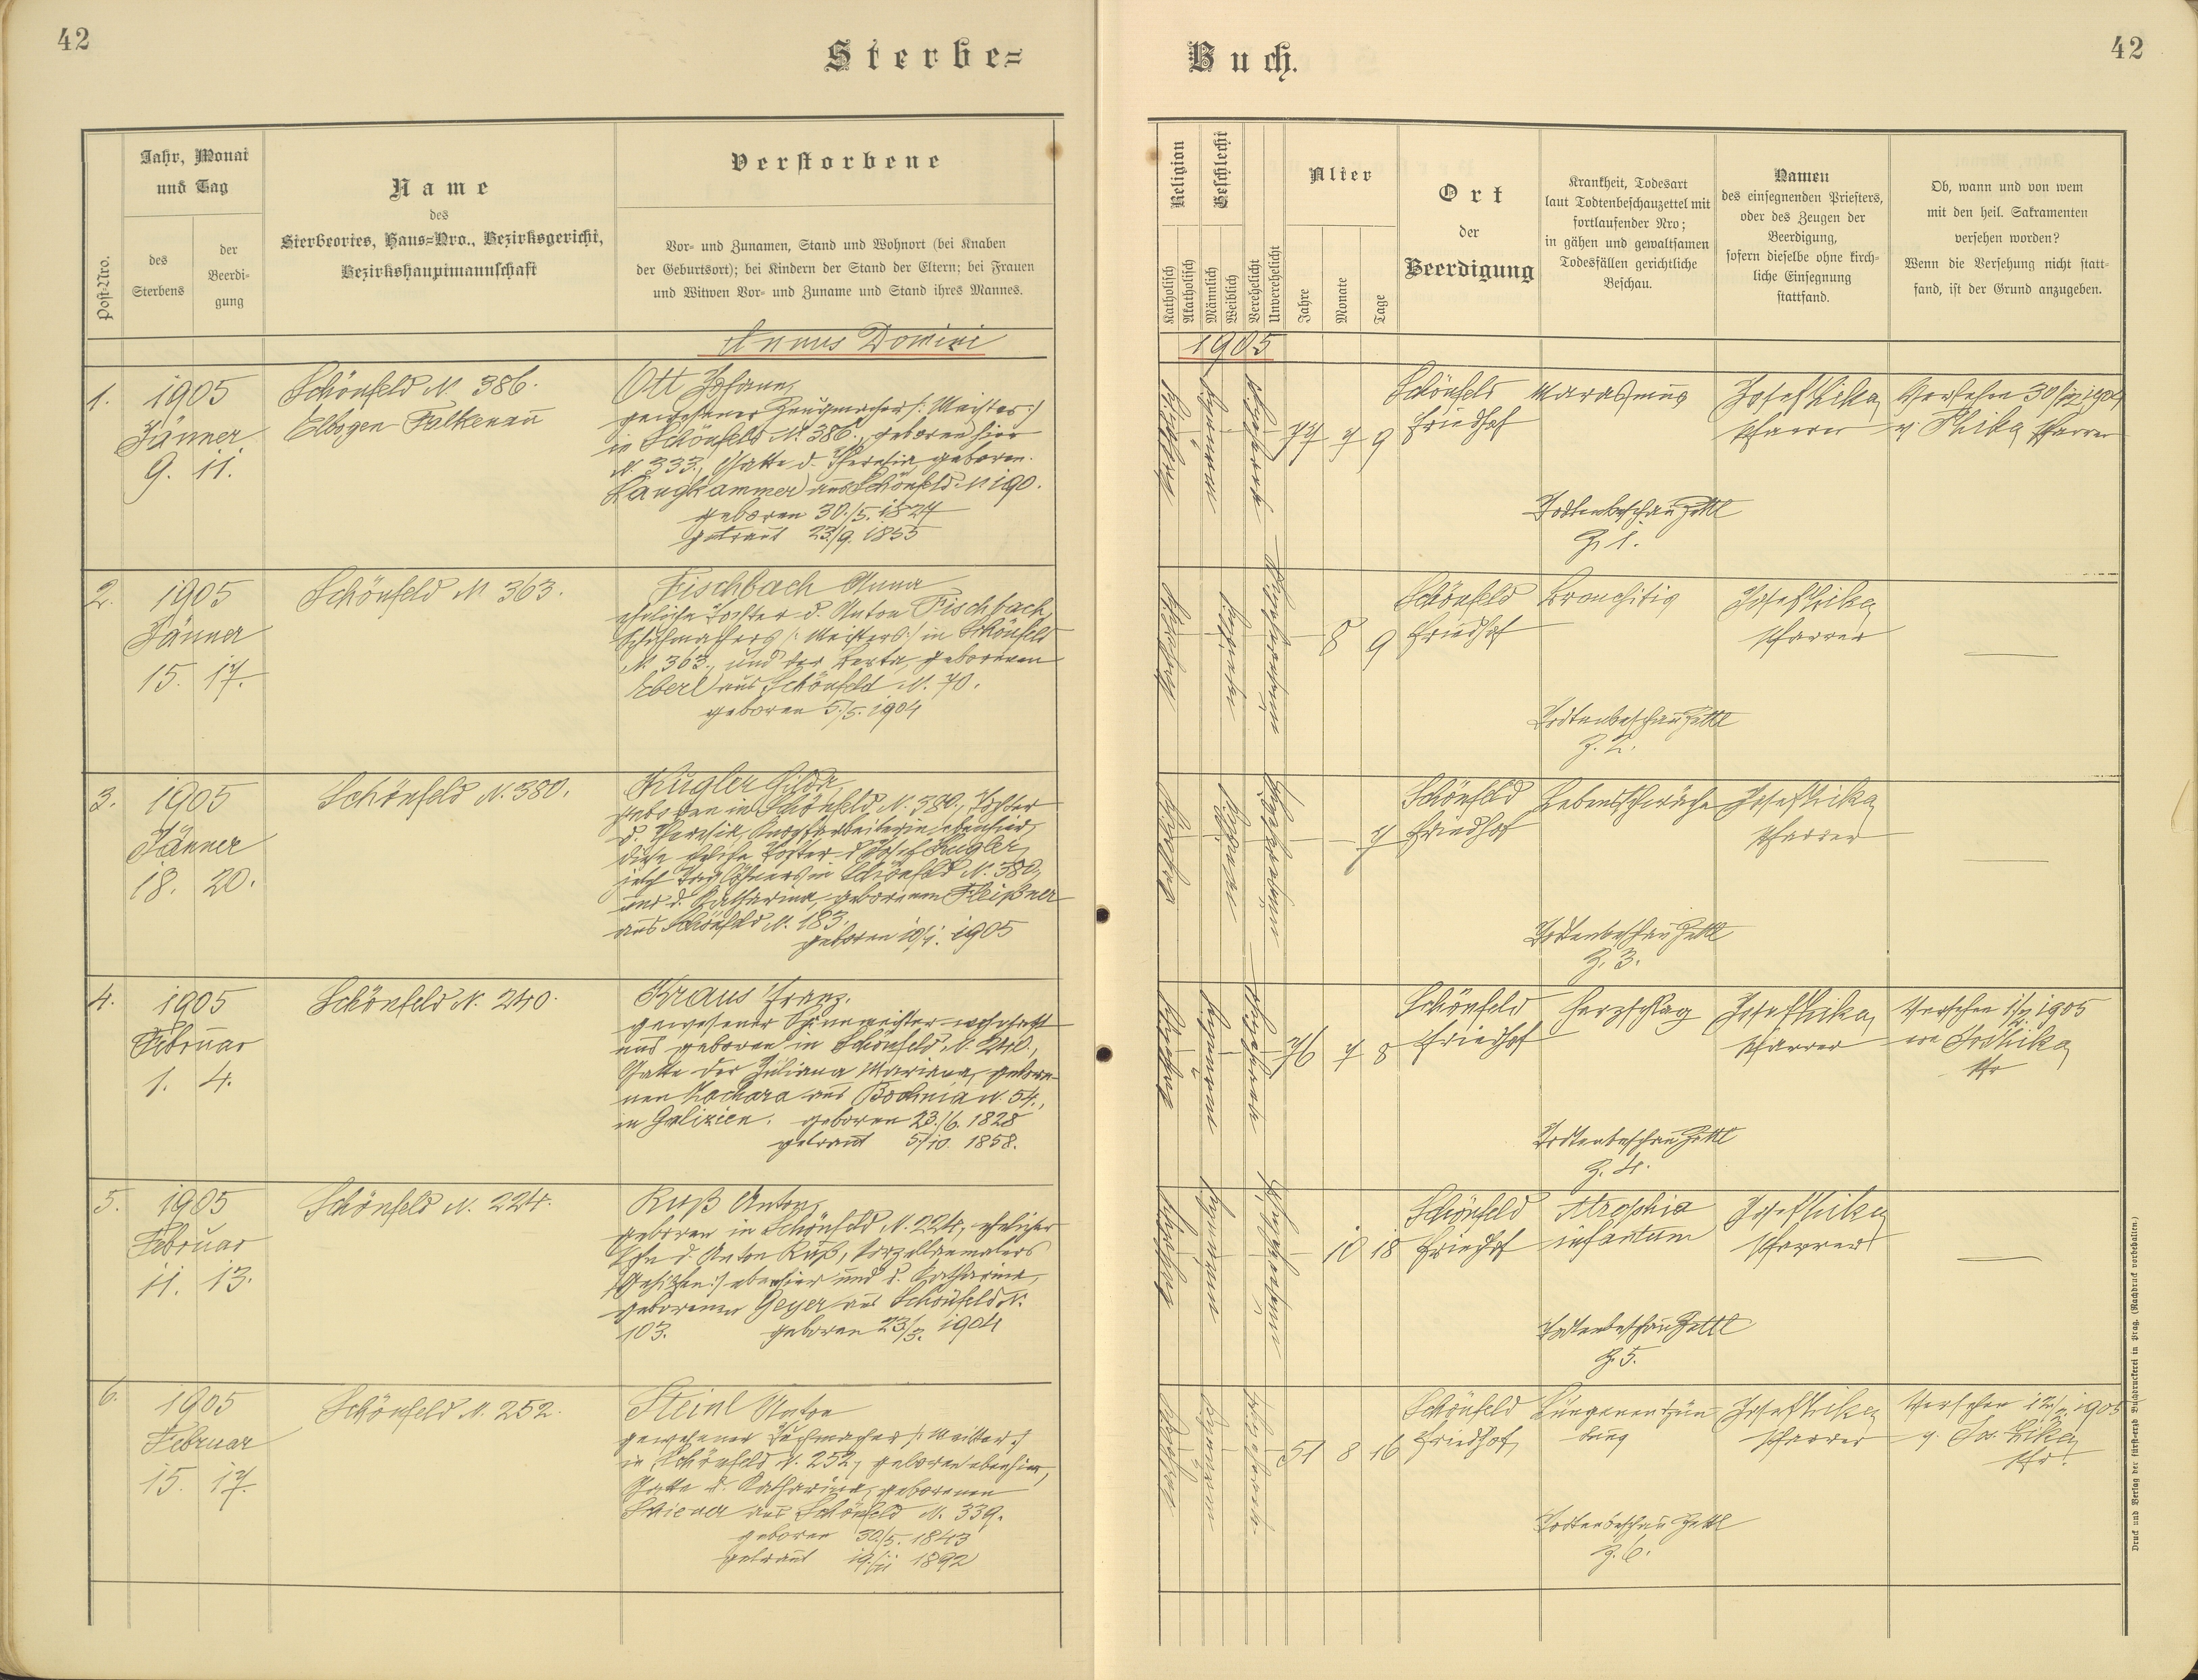 42
Sterbe=
Buch.
42
Post-Nro.
Jahr, Monat
und Tag
des
Sterbens
der
Beerdi-
gung
Name
des
Sterbeortes, Haus=Nro., Bezirksgericht,
Bezirkshauptmannschaft
Verstorbene
Vor- und Zunamen, Stand und Wohnort (bei Knaben
der Geburtsort); bei Kindern der Stand der Eltern; bei Frauen
und Witwen Vor- und Zuname und Stand ihres Mannes.
Religion
Katholisch
Akatholisch
Geschlecht
Männlich
Weiblich
Verehelicht
Unverehelicht
Alter
Jahre
Monate
Tage
Ort
der
Beerdigung
Krankheit, Todesart
laut Todtenbeschauzettel mit
fortlaufender Nro;
in gähen und gewaltsamen
Todesfällen gerichtliche
Beschau.
Namen
des einsegnenden Priesters,
oder des Zeugen der
Beerdigung,
sofern dieselbe ohne kirch-
liche Einsegnung
stattfand.
Ob, wann und von wem
mit den heil. Sakramenten
versehen worden?
Wenn die Versehung nicht statt-
fand, ist der Grund anzugeben.
Annus Domini
1905
1.
1905
Jänner
9. 11.
Schönfeld N. 386.
Elbogen Falkenau
Ott Johann,
gewesener Zeugmacher /: Meister :/
in Schönfeld N. 386., geboren hier
N. 333., Gatte d. Theresia, geboren.
Langhammer aus Schönfeld N 190.
geboren 30./5. 1827
getraut 23./9. 1855
Katholisch
Männlich
Verehelicht
77 7 9
Schönfeld
Friedhof
Marasmus
Todtenbeschau Zettl
Z. 1.
Pfarrer
Versehen 30/ 1904
Pfarrer
2.
1905
Jänner
15. 17.
Schönfeld N 363.
Fischbach Anna
eheliche Tochter d. Anton Fischbach,
Schuhmachers /: Meisters :/ in Schönfeld
N. 363., und der Berta, geborenen
Eberl aus Schönfeld N. 70.
geboren 5./5. 1904
8 9
Schönfeld
Friedhof
Bronchitis
Todtenbeschau Zettl
Z. 2.
Pfarrer
3.
1905
Jänner
18. 20.
Schönfeld N. 380.
Kugler Hilda,
geboren in Schönfeld, N. 380., Tochter
d. Theresia, Knopfarbeiterin ebenhier,
diese eheliche Tochter d. Josef Kugler,
Taglöhners in Schönfeld N. 380,
und d. Katharina, geborenen Fleißner
aus Schönfeld N. 183.
geboren 10/1. 1905
7
Schönfeld
Friedhof
Lebensschwäche
Todtenbeschau Zettl
Z. 3.
Pfarrer
4.
1905
Februar
1. 4.
Schönfeld N. 240.
Kraus Franz,
gewesener wohnhaft
und geboren in Schönfeld N. 240.,
Gatte der Juliana Mariana, gebore-
nen Kochara aus Bochnia N. 54.,
in Galizien. geboren 23./6. 1828
getraut 5./10. 1858.
76 7 8
Schönfeld
Friedhof
Herzschlag
Todtenbeschau Zettl
Z. 4.
Pfarrer
Versehen 1/2 1905
5.
1905
Februar
11. 13.
Schönfeld N. 224.
Ruß Anton,
geboren in Schönfeld N. 224, ehelicher
Sohn d. Anton Ruß, Porzellanmalers
/: Gehilfen :/ ebenhier und d. Katharina,
geborenen Geyer aus Schönfeld N.
103. geboren 23/3. 1904
10 18
Schönfeld
Friedhof
Atrophia
infantum
Todtenbeschau Zettl
Z. 5.
Pfarrer
6.
1905
Februar
15. 17.
Schönfeld N. 252.
Steinl Anton
gewesener Tuchmacher /: Meister :/
in Schönfeld N. 252, geboren ebenhier,
Gatte d. Katharina, geborenen
aus Schönfeld N. 339.
geboren 30/5. 1843
getraut 19./11 1892
8 16
Schönfeld
Friedhof
Lungenentzün
dung
Todtenbeschau Zettl
Z. 6.
Pfarrer
Versehen 12/2 1905
Druck und Verlag der fürst-erzb. Buchdruckerei in Prag. (Nachdruck vorbehalten.)